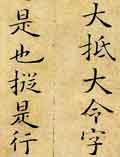 大抵大令字
是也挺是行